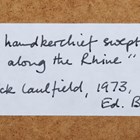 handkerchief swept
along the Rhine"
ck Caulfield, 1973,
Ed. B